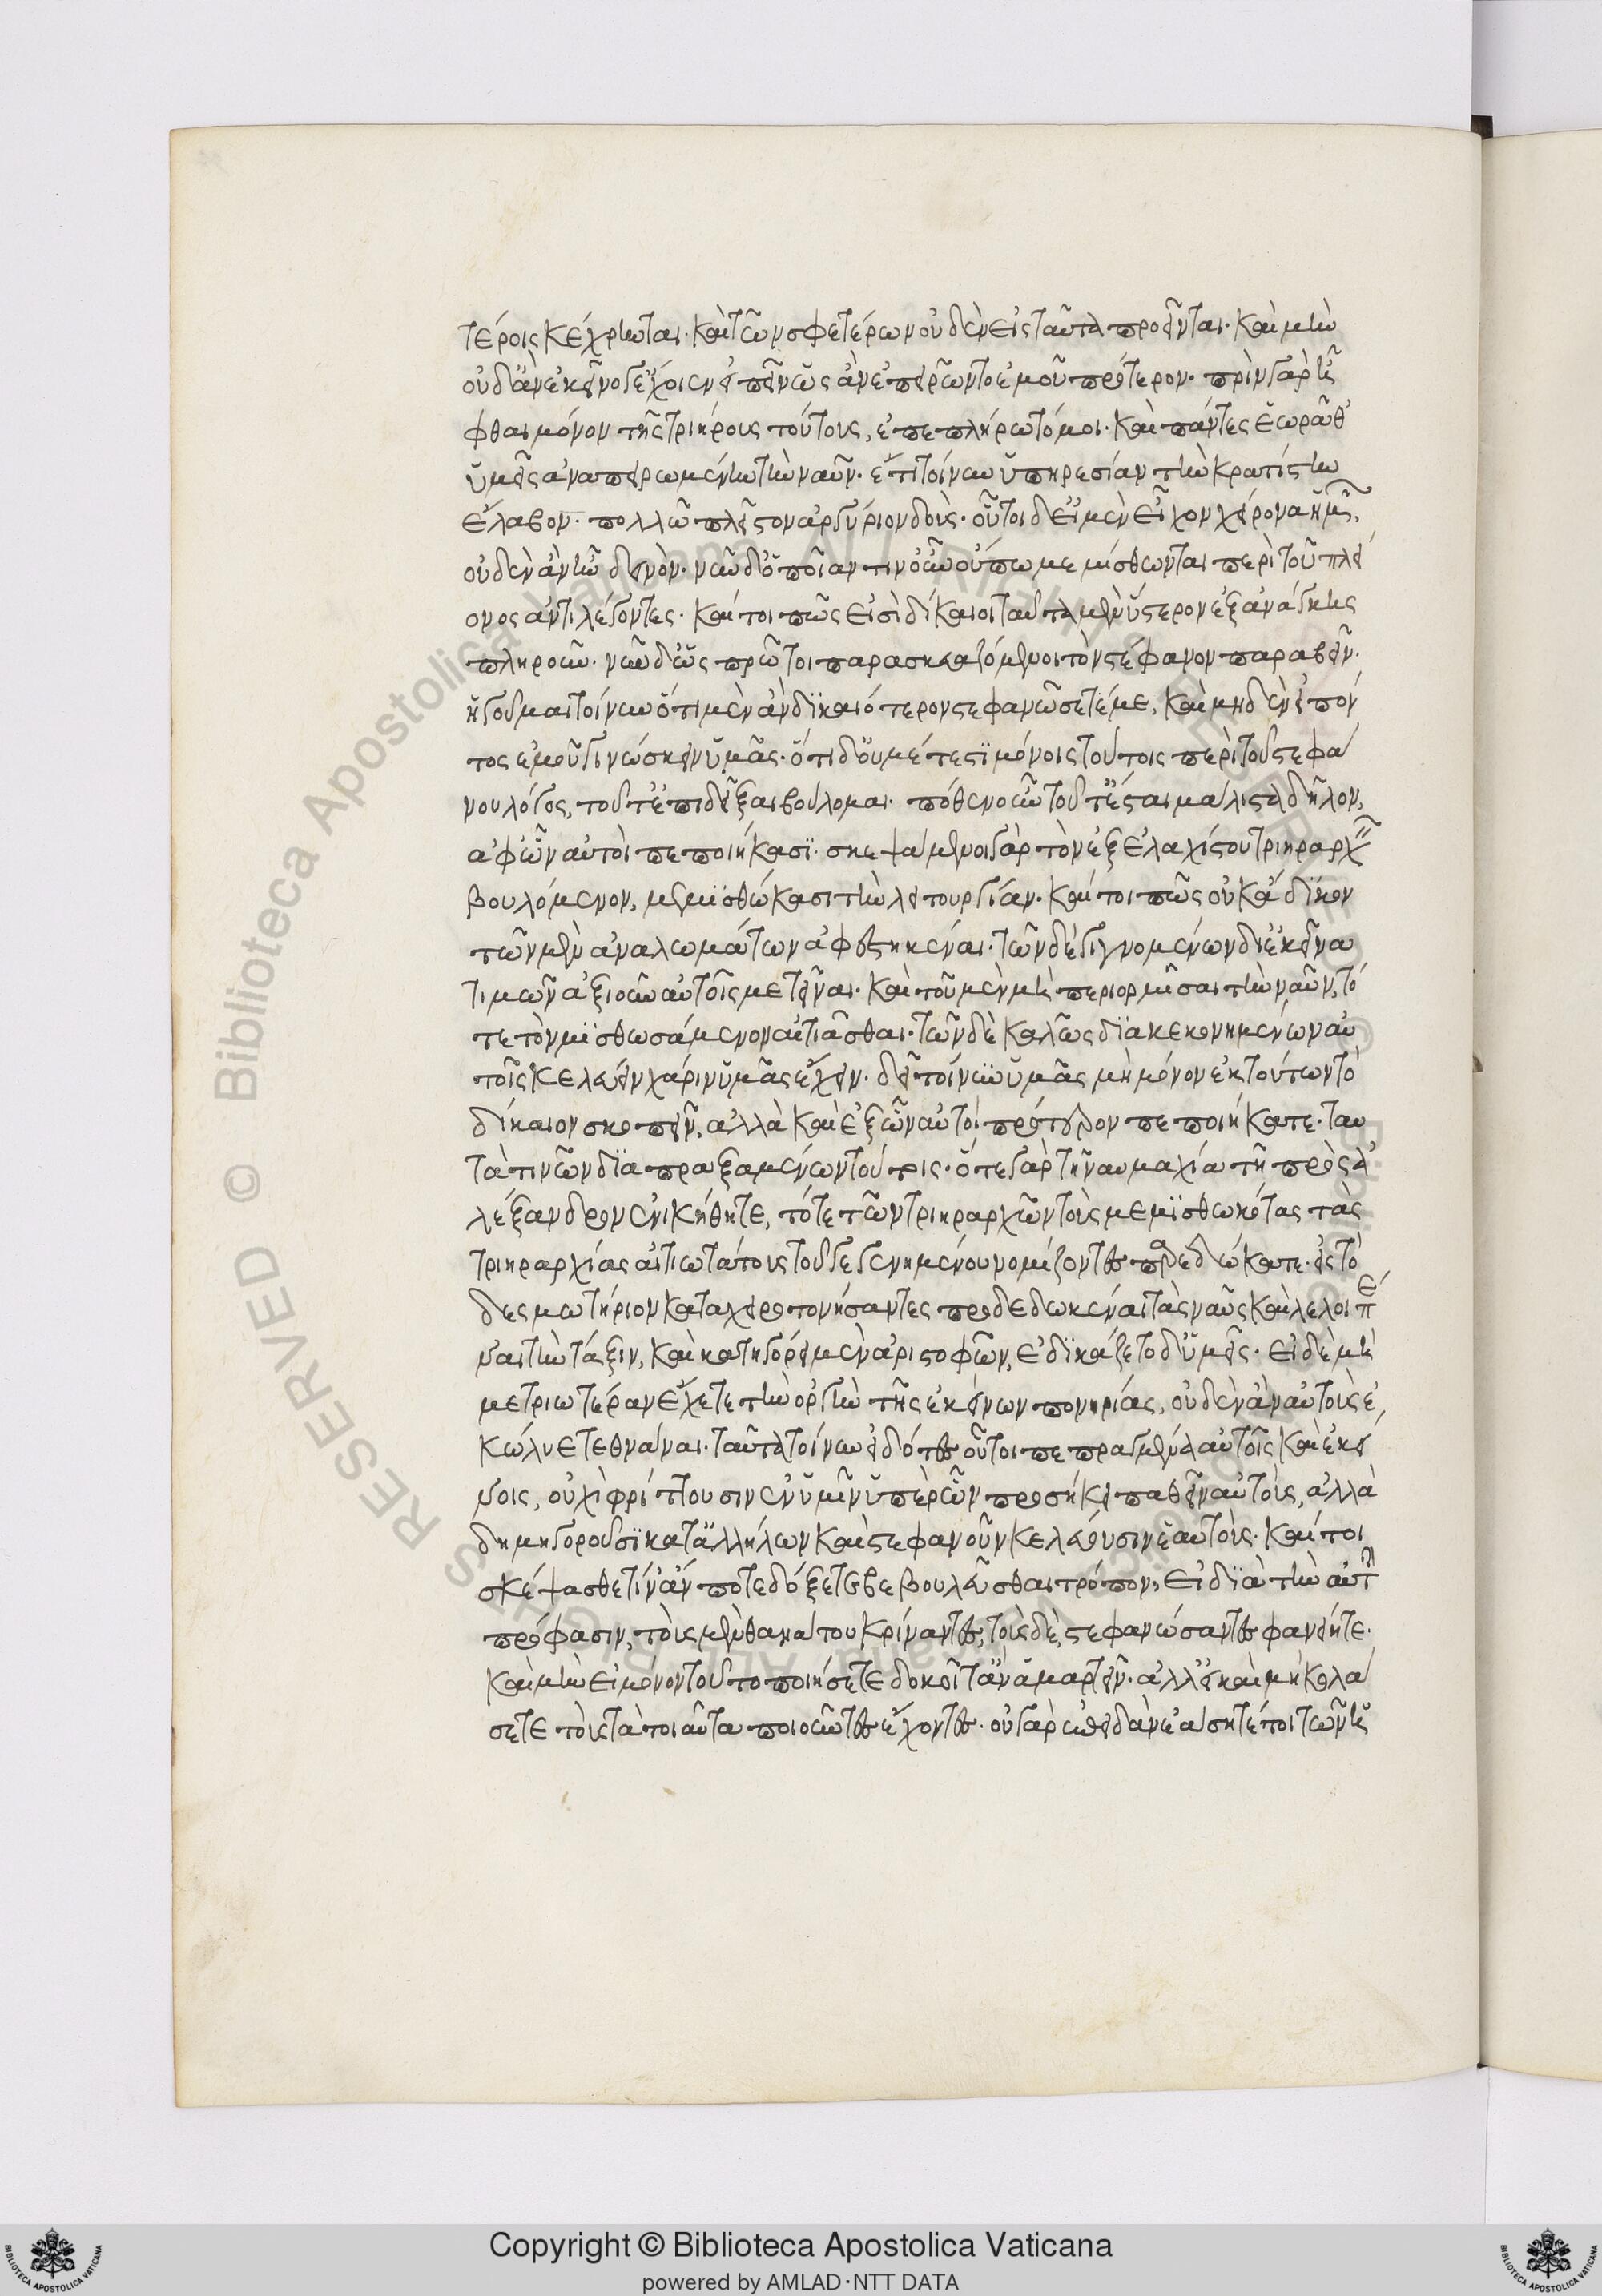 τέροις κέχρηνται· καὶ τῶν σφετέρων οὐδὲν εἰς ταῦτα προεῖνται· καὶ μὴν
οὐδ' ἂν ἐκεῖνό γ' ἔχοιεν εἰπεῖν ὡς ἀνεπειρῶντο ἐμοῦ πρότερον· πρὶν γὰρ
φθαι μόνον τῆς τριήρους τούτους, ἐπεπλήρωτό μοι· καὶ πάντες ἑωρᾶθ'
ὑμεῖς ἀναπειρωμένην τὴν ναῦν· ἔτι τοίνυν ὑπηρεσίαν τὴν κρατίστην
ἔλαβον· πολλῷ πλεῖστον ἀργύριον δούς· οὗτοι δ' εἰ μὲν εἶχον χείρονα ἡμῶν,
οὐδὲν ἂν ἦν δεινόν· νῦν δ' ὁποῖαν τινοῦν οὔπω μεμίσθωνται περὶ τοῦ πλεί
ονος ἀντιλέγοντες· καίτοι πῶς εἰσὶ δίκαιοι ταῦτα μὲν ὕστερον ἐξανάγκης
πληροῦν· νῦν δ' ὡς πρῶτοι παρασκευαζόμενοι τὸν στέφανον παραβεῖν·
ἡγοῦμαι τοίνυν ὅτι μὲν ἂν δικαιότερον στεφανώσετ' ἐμὲ, καὶ μηδὲν εἰπόν
τος ἐμοῦ γινώσκειν ὑμᾶς· ὅτι δ' οὐ μέτεστι μόνοις τούτοις περὶ τοῦ στεφά
νου λόγος, τοῦτ' ἐπιδεῖξαι βούλομαι· πόθεν οὖν τοῦτ' ἔσται μάλιστα δῆλον,
ἀφ' ὧν αὐτοὶ πεποιήκασι· σκεψάμενοι γὰρ τὸν ἐξ ἐλαχίστου τριηραρχεῖν
βουλόμενον, μεμισθώκασι τὴν λειτουργίαν· καίτοι πῶς οὐκ ἄδικον
τῶν μὲν ἀναλωμάτων ἀφεστηκέναι· τῶν δὲ γιγνομένων δι' ἐκεῖνα
τιμῶν ἀξιοῦν αὐτοῖς μετεῖναι· καὶ τοῦ μὲν μὴ περιορμῆσαι τὴν ναῦν, τό
τε τὸν μισθωσάμενον αἰτιᾶσθαι· τῶν δὲ καλῶς διακεκονημένων αὐ
τοῖς κελεύειν χάριν ὑμᾶς ἔχειν· δεῖ τοίνυν ὑμᾶς μὴ μόνον ἐκ τούτων τὸ
δίκαιον σκοπεῖν, ἀλλὰ καὶ ἐξ ὧν αὐτοὶ πρότερον πεποιήκατε· ταυ
τά τινων διαπραξαμένων τούτοις· ὅτε γὰρ τῇ ναυμαχίᾳ τῇ πρὸς ἀ
λέξανδρον ἐνικήθητε, τότε τῶν τριηραρχῶν τοὺς μεμισθωκότας τὰς
τριηραρχίας αἰτιωτάτους τοῦ γεγενημένου νομίζοντες παρεδώκατε· εἰς τὸ
δεσμωτήριον καταχειροτονήσαντες προδεδωκέναι τὰς ναῦς καὶ λελοιπέ
ναι τὴν τάξιν, καὶ κατηγόρει μὲν ἀριστοφῶν, ἐδικάζετο δ' ὑμεῖς· εἰ δὲ μὴ
μετριωτέραν ἔχετε τὴν ὀργὴν τῆς ἐκείνων πονηρίας, οὐδὲν ἂν αὐτοὺς ἐ
κώλυε τεθνάναι· ταῦτα τοίνυν εἰδότες οὗτοι πεπραγμένα αὐτοῖς καὶ ἐκεί
νοις, οὐχὶ φρίττουσιν ἐν ὑμῖν ὑπὲρ ὧν προσήκει παθεῖν αὐτούς, ἀλλὰ
δημηγοροῦσι κατ' ἀλλήλων καὶ στεφανοῦν κελεύουσιν ἑαυτούς· καίτοι
σκέψασθε τίν' ἄν ποτε δόξετε βεβουλεῦσθαι τρόπον, εἰ διὰ τὴν αὐτὴν
πρόφασιν, τοὺς μὲν θανάτου κρίναντες, τοὺς δὲ, στεφανώσαντες φανείητε·
καὶ μὴν εἰ μόνον τοῦτο ποιήσετε δοκοῖτ' ἂν ἁμαρτεῖν· ἀλλ' εἰ καὶ μὴ κολά
σετε τοὺς τὰ τοιαῦτα ποιοῦντες ἔχοντες· οὐ γὰρ ἐπειδὰν ἐάσητέ τι τῶν